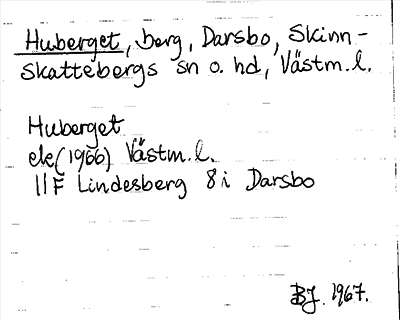 Huberget, berg, Darsbo, Skinn-
skattebergs sn o. hd, Västm. l.
Huberget
ek (1966) Västm. l.
11F Lindesberg 8i Darsbo
BJ. 1967.